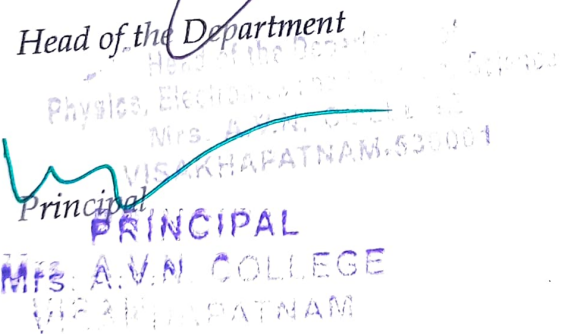 Head of the Department
Head of the Depart
Physics, Electron Science
Mrs. A.V.N.
VISAKHAPATNAM-530001
Principal
PRINCIPAL
Mrs. A.V.N. COLLEGE
VISAKHAPATNAM